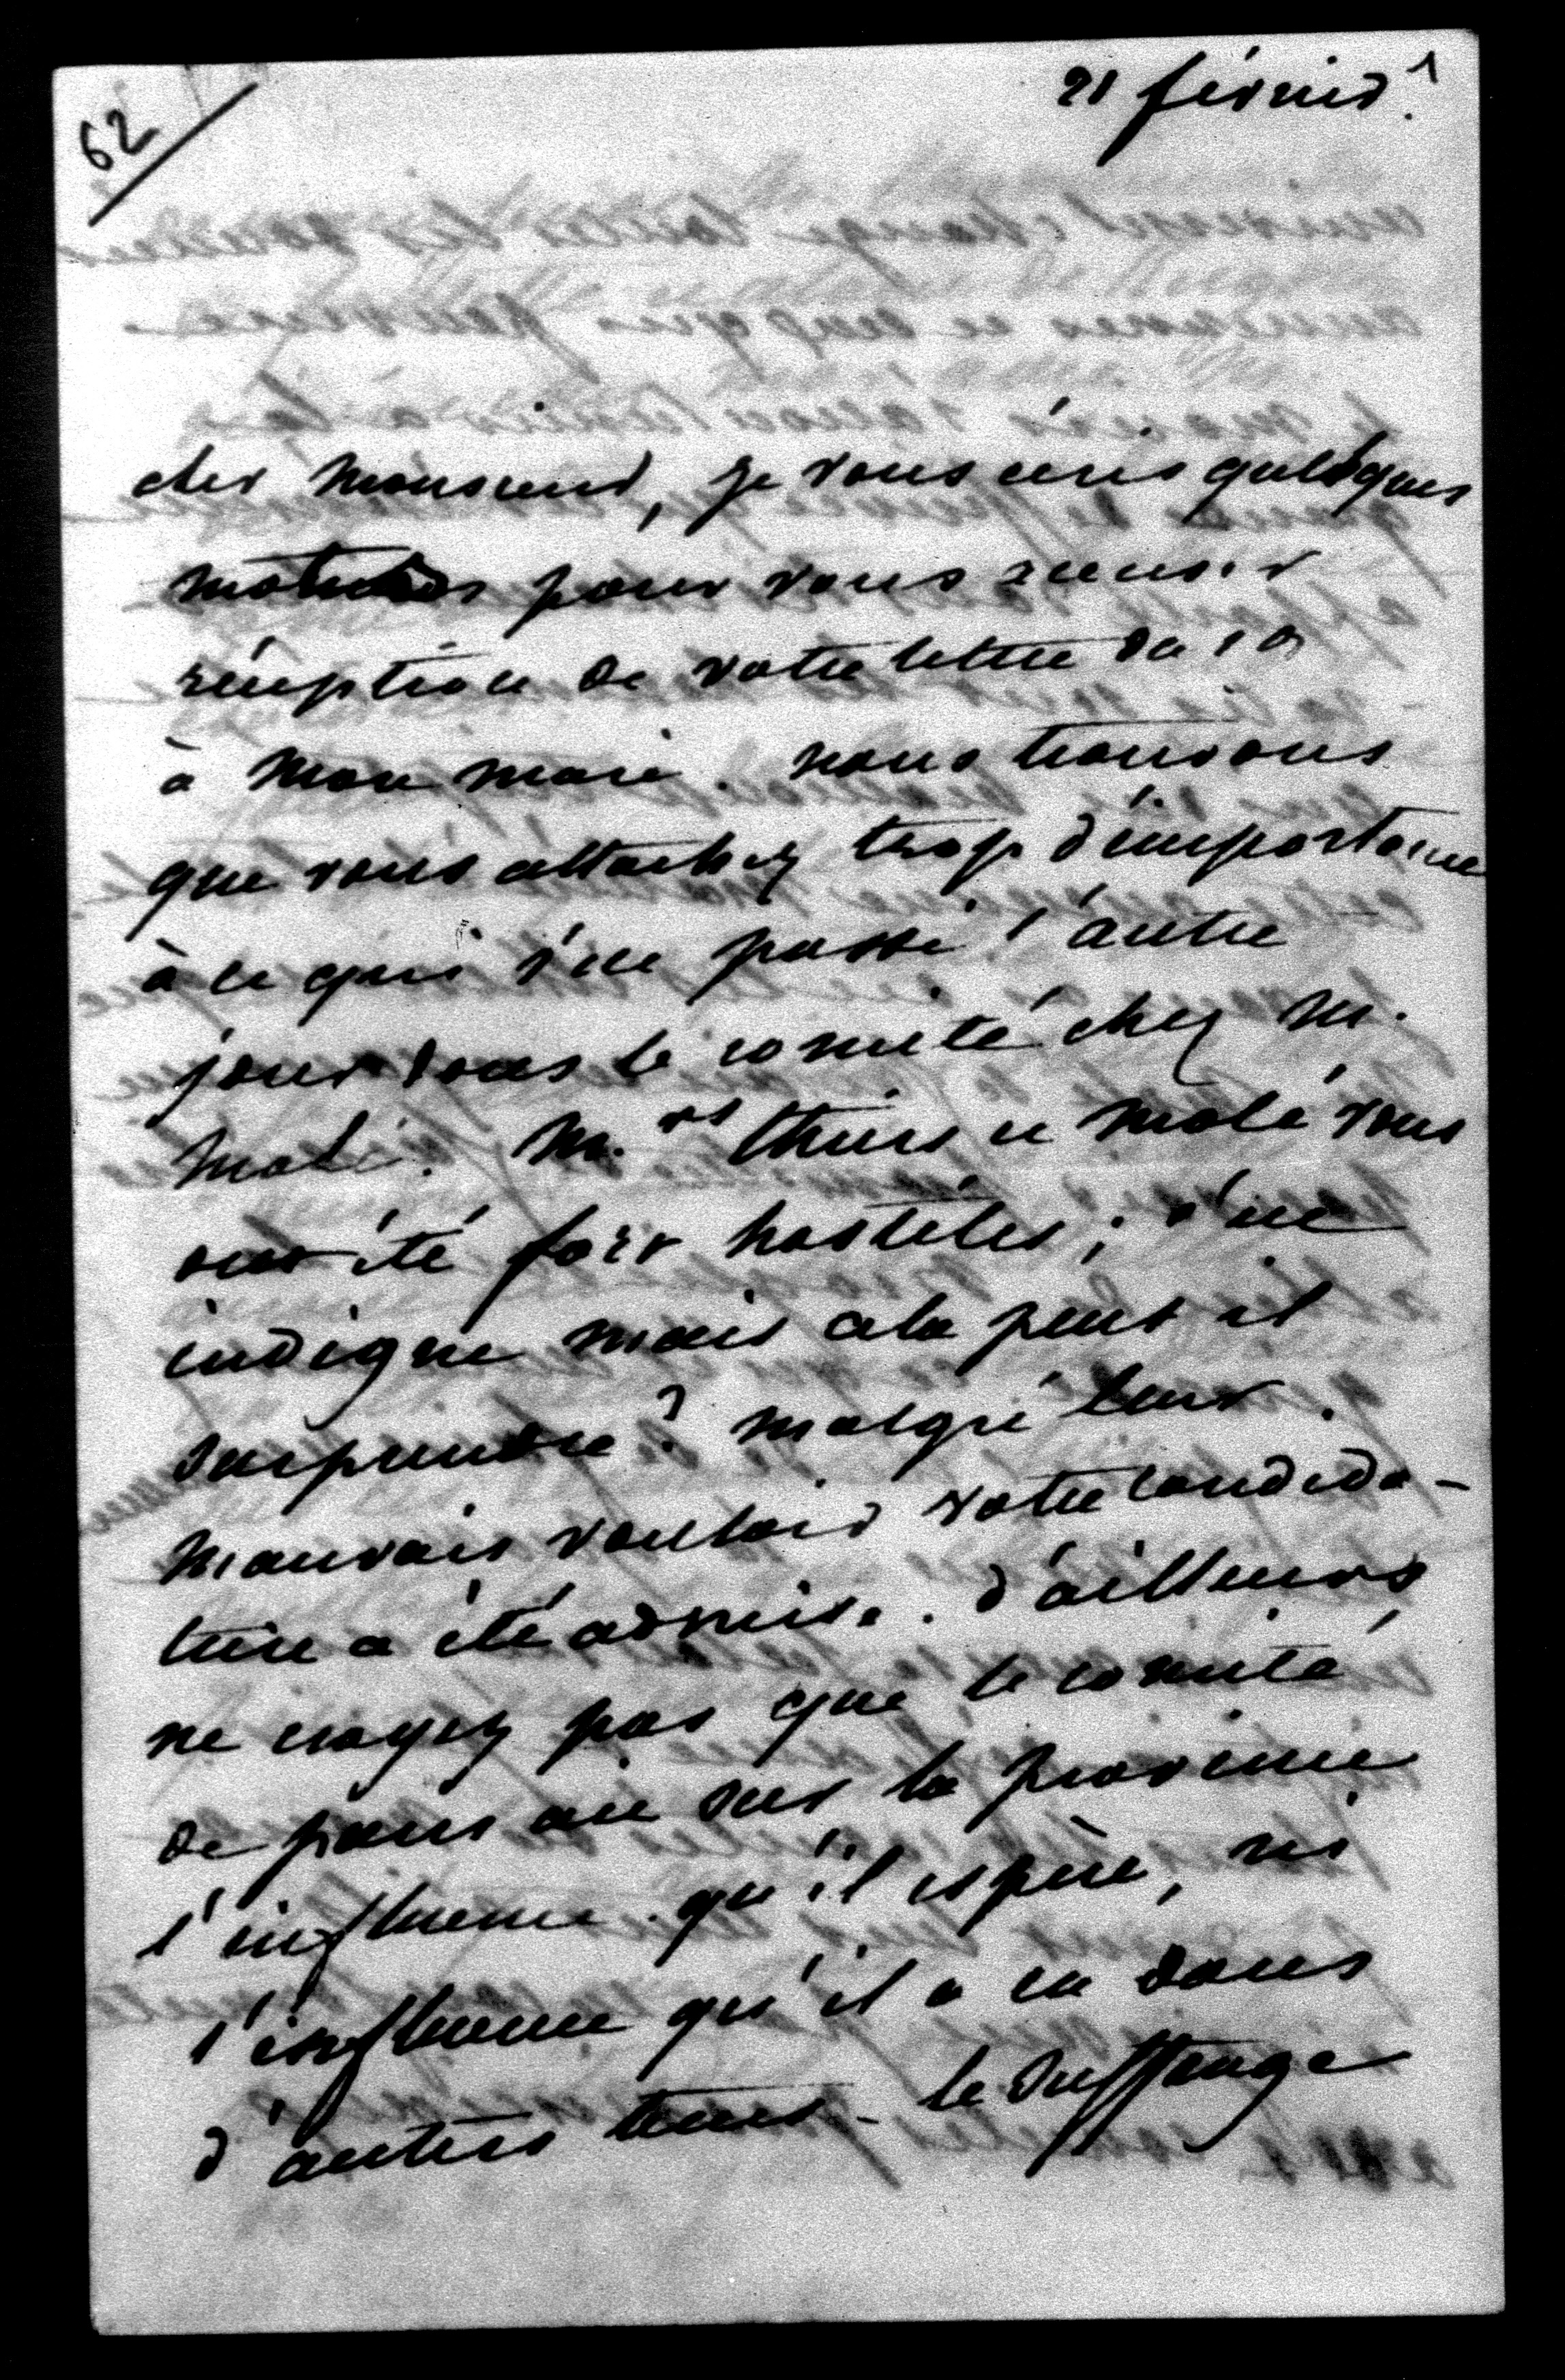 62
21 février 1
cher monsieur, je vous écris quelques
pour vous accuser
réception de votre lettre du
à mon mari. nous trouvons
que vous attachez trop d'importance
à ce qui s'est passé l'autre
jour dans le comité chez M.
Molé. M.rs thiers et molé vous
ont été fort hostiles; c'est
indigne mais cela peut il
surprendre? malgré leur
mauvais vouloir votre candida-
ture a été admise. d'ailleurs
ne croyez pas que le comité
de paris ait sur la province
l'influence qu'il espère, ni
l'influence qu'il a eu dans
d'autres tems - le suffrage